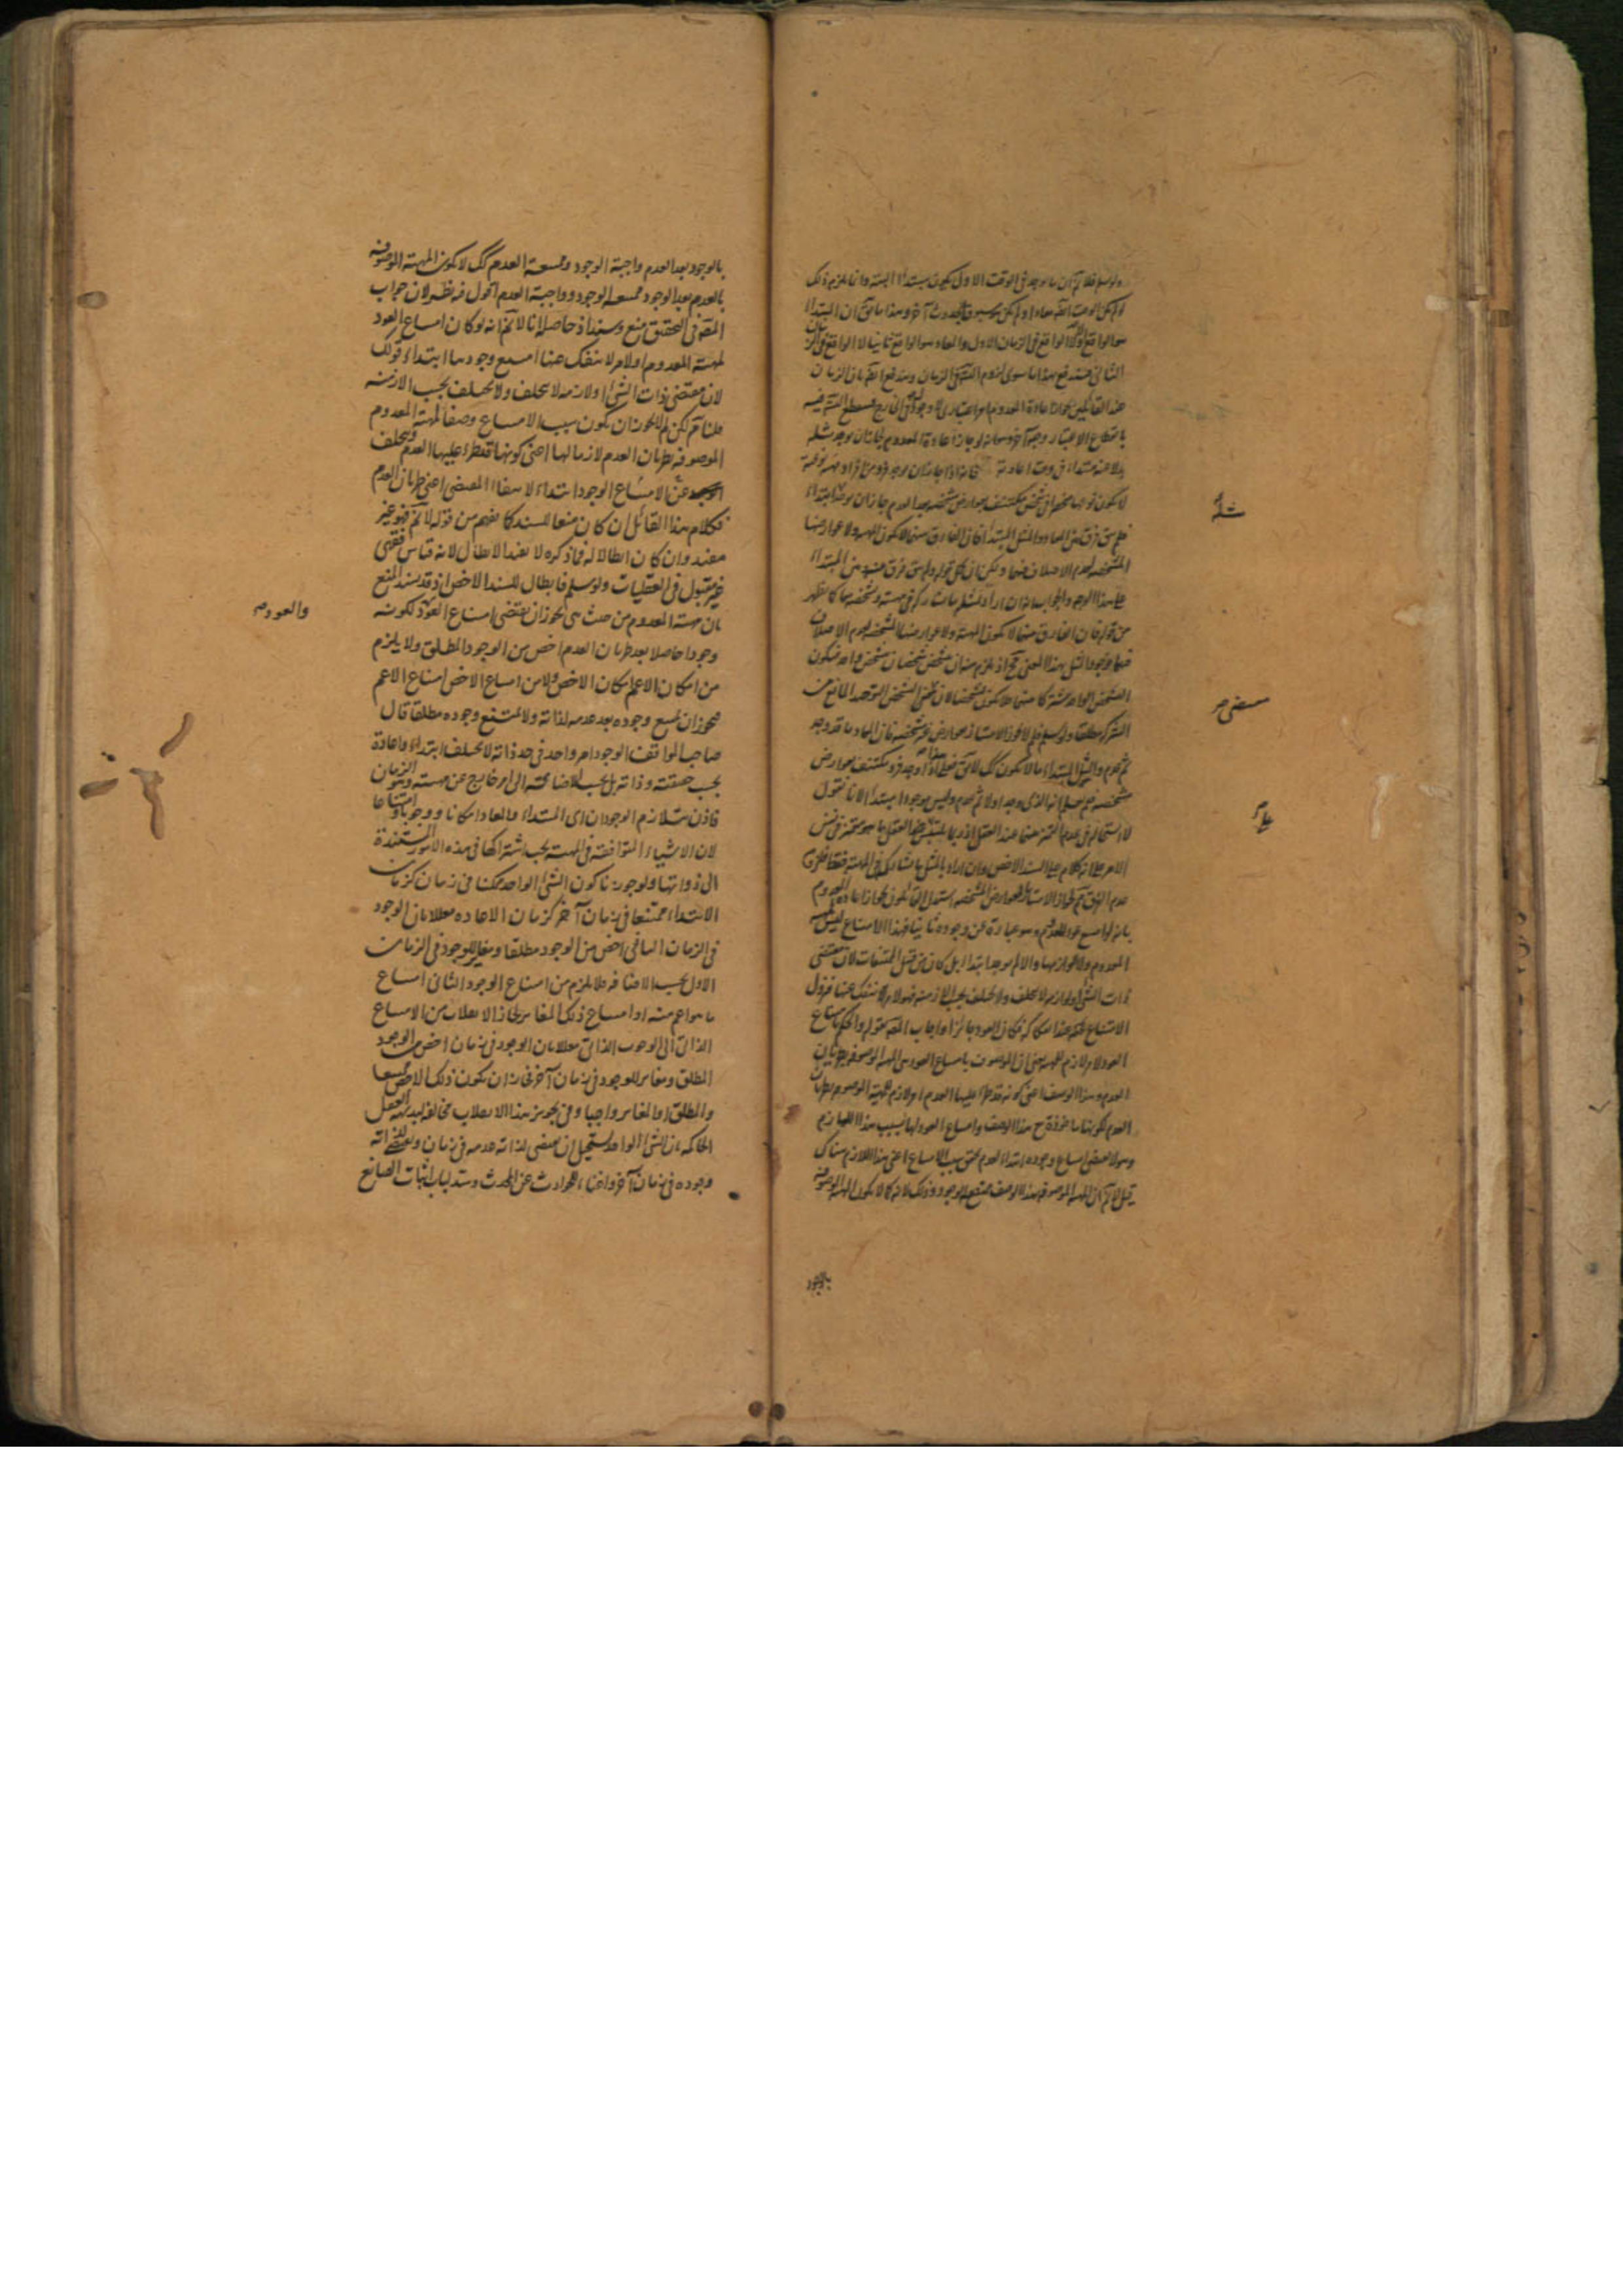 ولو سلم فلا نم ان ما يوجد فى الوقت الاول يكون مبتدأ البتة وانما يلزم ذلك
لو لم يكن الوقت ايضا معادا ولم يكن مسبوقا بحدوث آخر وهذا ما يق ان المبتدأ
هو الواقع اولا لا الواقع فى الزمان الاول والمعاد هو الواقع ثانيا لا الواقع فى الزمان
الثانى فيندفع بهذا ما سوى لزوم التس فى الزمان ويندفع ايضا بان الزمان
عند القائلين بجواز اعادة المعدوم امر اعتبارى لا وجود له فى الخارج فينقطع التس فيه
بانقطاع الاعتبار وجه آخر وهو انه لو جاز اعادة المعدوم لجاز ان يوجد مثله
بدلا عنه مبتداء فى وقت اعادته
لا يكون نوعها منحصرا فى شخص مكتنف بعوارض مشخصة بعد العدم جاز ان يوجد ابتداء
فلم يبق فرق بين المعاد والمثل المبتدأ فان الفارق بينهما لا يكون المهية ولا عوارضها
المشخصة لعدم الاختلاف فيهما
على هذا الوجه والجواب انه ان اراد بالمثل ما يشاركه فى مهيته ومشخصه كما يظهر
من قوله فان الفارق بينهما لا يكون المهية ولا عوارضها المشخصة لعدم الاختلاف
فيهما فوجود المثل بهذا المعنى مح اذ يلزم منه ان يتشخص شخصان بتشخص واحد فيكون
التشخص الواحد مشتركا بينهما فلا يكون تشخصا لان معنى التشخص التوحد المانع من
ثم عدم والمثل المبتداء ما لا يكون كك
مشخصة لم يعلم انه الذى وجد اولا ثم عدم وليس موجودا مبتدأ لانا نقول
لا استحالة فى عدم التميز بينهما عند العقل اذ ربما يلتبس على العقل ما هو متميز فى نفس
الامر على انه كلام على السند الاخص وان اراد بالمثل ما يشاركه فى المهية فقط فلزوم
عدم الفرق مم لجواز الامتياز بالعوارض المشخصة استدل القائلون بجواز اعادة المعدوم
بانه لو امتنع عود المعدوم وهو عبارة عن وجوده ثانيا فهذا الامتناع ليس لمهية
المعدوم ولا لوازمها والا لم يوجد ابتداء بل كان من قبيل الممتنعات لان مقتضى
ذات الشئ او لوازمه لا يتخلف ولا يختلف بحسب الازمنة فهو لامر ينفك عنها فيزول
الامتناع عند انفكاكه فكان العود جائزا واجاب المص بقوله والحكم بامتناع
العود لامر لازم للمهية يعنى ان الموصوف بامتناع العود هى المهية الموصوفة بطريان
العدم وهذا الوصف اعنى كونه قد طرا عليها العدم امر لازم للمهية الموصوفة بطريان
العدم لكونها ماخوذة مع هذا الوصف وامتناع العود لها بسبب هذا اللازم
وهو لا يقتضى امتناع وجوده ابتداء لعدم تحقق سبب الامتناع اعنى هذا اللازم هناك
قيل لا نم ان المهية الموصوفة بهذا الوصف ممتنعة الوجود وذلك لانه كما لا يكون المهية الموصوفة
بالوجود
بالوجود بعد العدم واجبة الوجود وممتنعة العدم كك لا يكون المهية الموصوفة
بالعدم بعد الوجود ممتنعة الوجود وواجبة العدم اقول فيه نظر لان جواب
المص فى التحقيق منع وسند اذ حاصله انا لا نم انه لو كان امتناع العود
لمهية المعدوم او لامر لا ينفك عنها امتنع وجودها ابتداء قولك
لان مقتضى ذات الشئ او لازمه لا يتخلف ولا يختلف بحسب الازمنة
قلنا نم لكن لم لا يجوز ان يكون سبب الامتناع وصفا لمهية المعدوم
الموصوفة بطريان العدم لازما لها اعنى كونها قد طرا عليها العدم ويتخلف
عن الامتناع الوجود ابتداء لانتفاء المقتضى اعنى طريان العدم
فكلام هذا القائل ان كان منعا للسند كما يفهم من قوله لا نم فهو غير
مفيد وان كان ابطالا له فما ذكره لا يفيد الابطال لانه قياس فقهى
غير مقبول فى العقليات ولو سلم فابطال للسند الاخص اذ قد يسند المنع
بان مهية المعدوم من حيث هى يجوز ان يقتضى امتناع العود لكونه
والعود
وجودا حاصلا بعد طريان العدم اخص من الوجود المطلق ولا يلزم
من امكان الاعم امكان الاخص ولا من امتناع الاخص امتناع الاعم
فيجوز ان يمتنع وجوده بعد عدمه لذاته ولا يمتنع وجوده مطلقا قال
صاحب المواقف الوجود امر واحد فى حد ذاته لا يختلف ابتداء واعادة
بحسب حقيقته وذاته بل بحسب الاضافة الى امر خارج عن مهيته وهو الزمان
فاذن يتلازم الوجودان اى المبتداء والمعاد امكانا ووجوبا وامتناعا
لان الاشياء المتوافقة فى المهية يجب اشتراكها فى هذه الامور المستندة
الى ذواتها ولو جوزنا كون الشئ الواحد ممكنا فى زمان كزمان
الابتداء ممتنعا فى زمان آخر كزمان الاعادة معللا بان الوجود
فى الزمان الثانى اخص من الوجود مطلقا ومغاير للوجود فى الزمان
الاول بحسب الاضافة فلا يلزم من امتناع الوجود الثانى امتناع
ما هو اعم منه او امتناع ذلك المغاير لجاز الانقلاب من الامتناع
الذاتى الى الوجوب الذاتى معللا بان الوجود فى زمان اخص من الوجود
المطلق ومغاير للوجود فى زمان آخر فجاز ان يكون ذلك الاخص ممتنعا
والمطلق او المغاير واجبا وفى تجويز هذا الانقلاب مخالفة لبديهة العقل
الحاكمة بان الشئ الواحد يستحيل ان يقتضى لذاته عدمه فى زمان ويقتضى لذاته
وجوده فى زمان آخر واغناء للحوادث عن المحدث وسد لباب اثبات الصانع